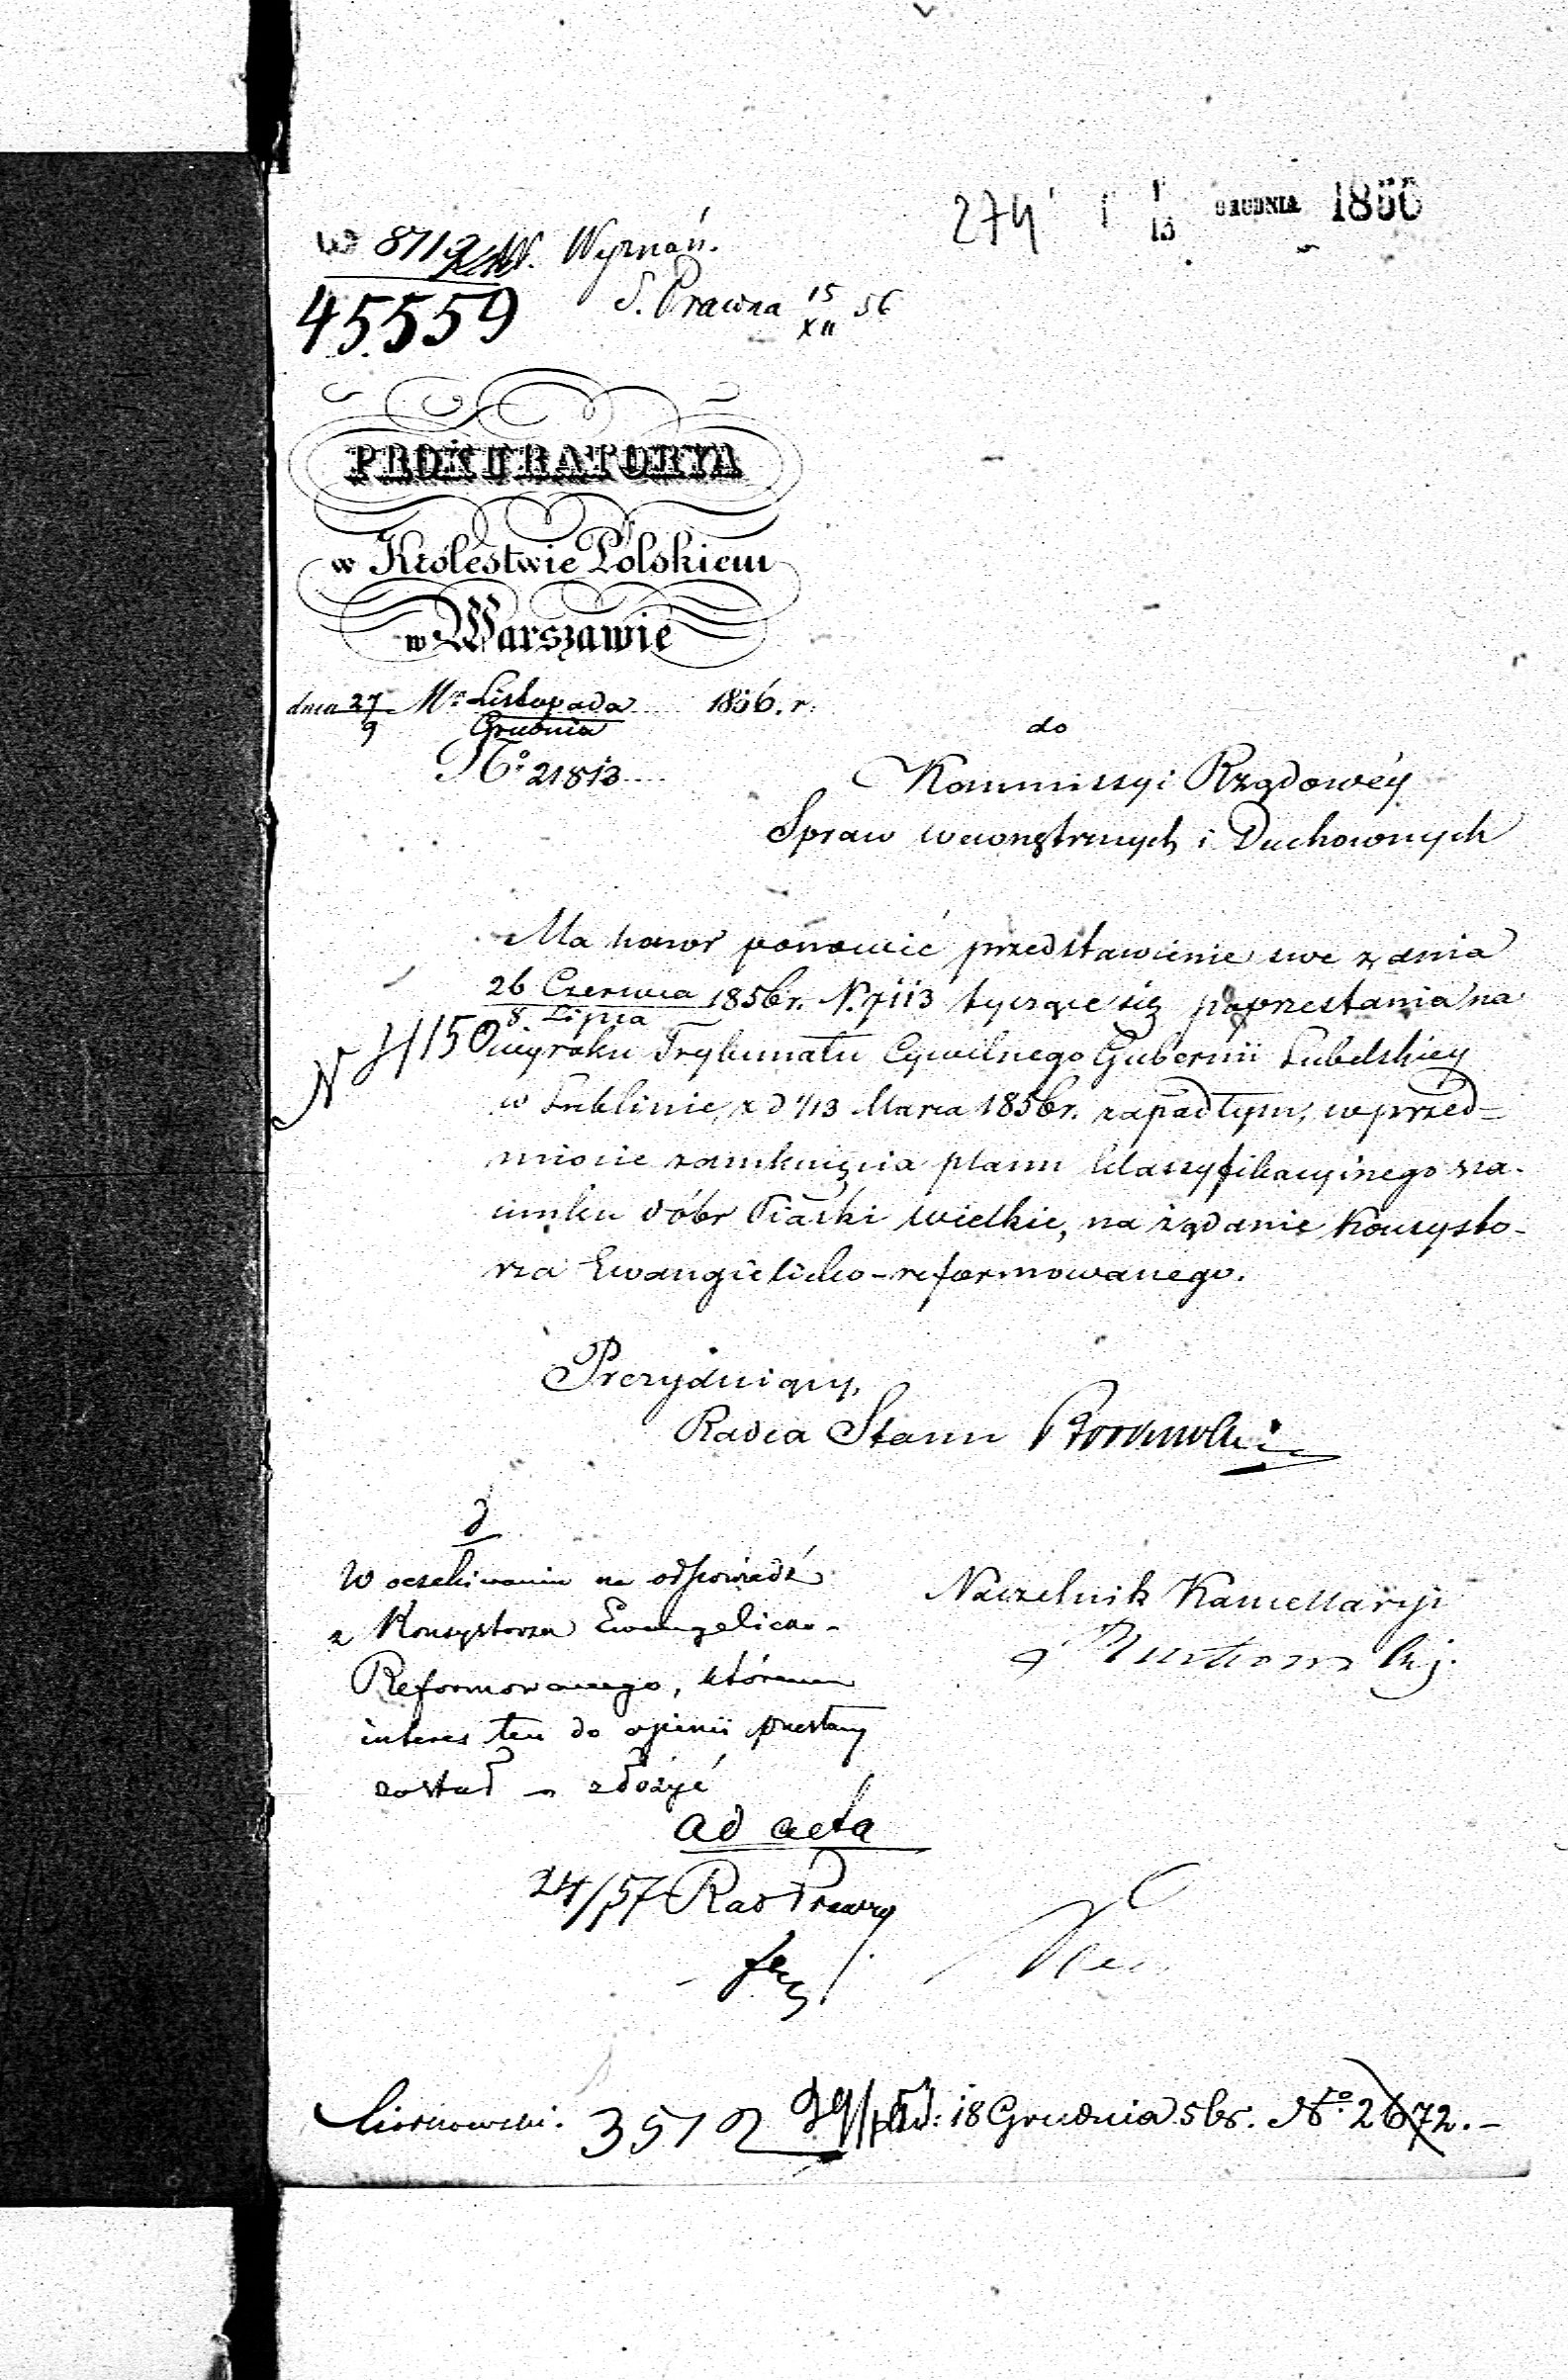 274 1/13 GRUDNIA 1856
W 8712 Wyznań.
45559 S. Prawna 15/XII 56
PROKURATORYA
w Królestwie Polskiem
w Warszawie
dnia 27/9 Mca Listopada/Grudnia 1856. r.
No 21813
do
Kommissyi Rządowéy
Spraw Wewnętrznych i Duchownych
Ma honor ponowić przedstawienie swe z dnia
26 Czerwca/8. Lipca 1856r. N. 7113 tyczące się poprzestania na
wyroku Trybunału Cywilnego Gubernii Lubelskiey
w Lublinie, z d 1/13 Marca 1856r. zapadłym, w przed-
miocie zamknięcia planu klassyfikacyinego sza-
cunku dóbr Piaski wielkie, na żądanie Konsysto-
rza Ewangielicko-reformowanego.
Prezyduiący,
Radca Stanu
Naczelnik Kancellaryi
W oczekiwaniu na odpowiedź
z Konsystorza Ewangelicko-
Reformowanego, któremu
interes ten do opinii przesłany
został – złożyć
ad acta
24/57 Rad Prawny
3512 18 Grudnia 56r. No. 2672.-